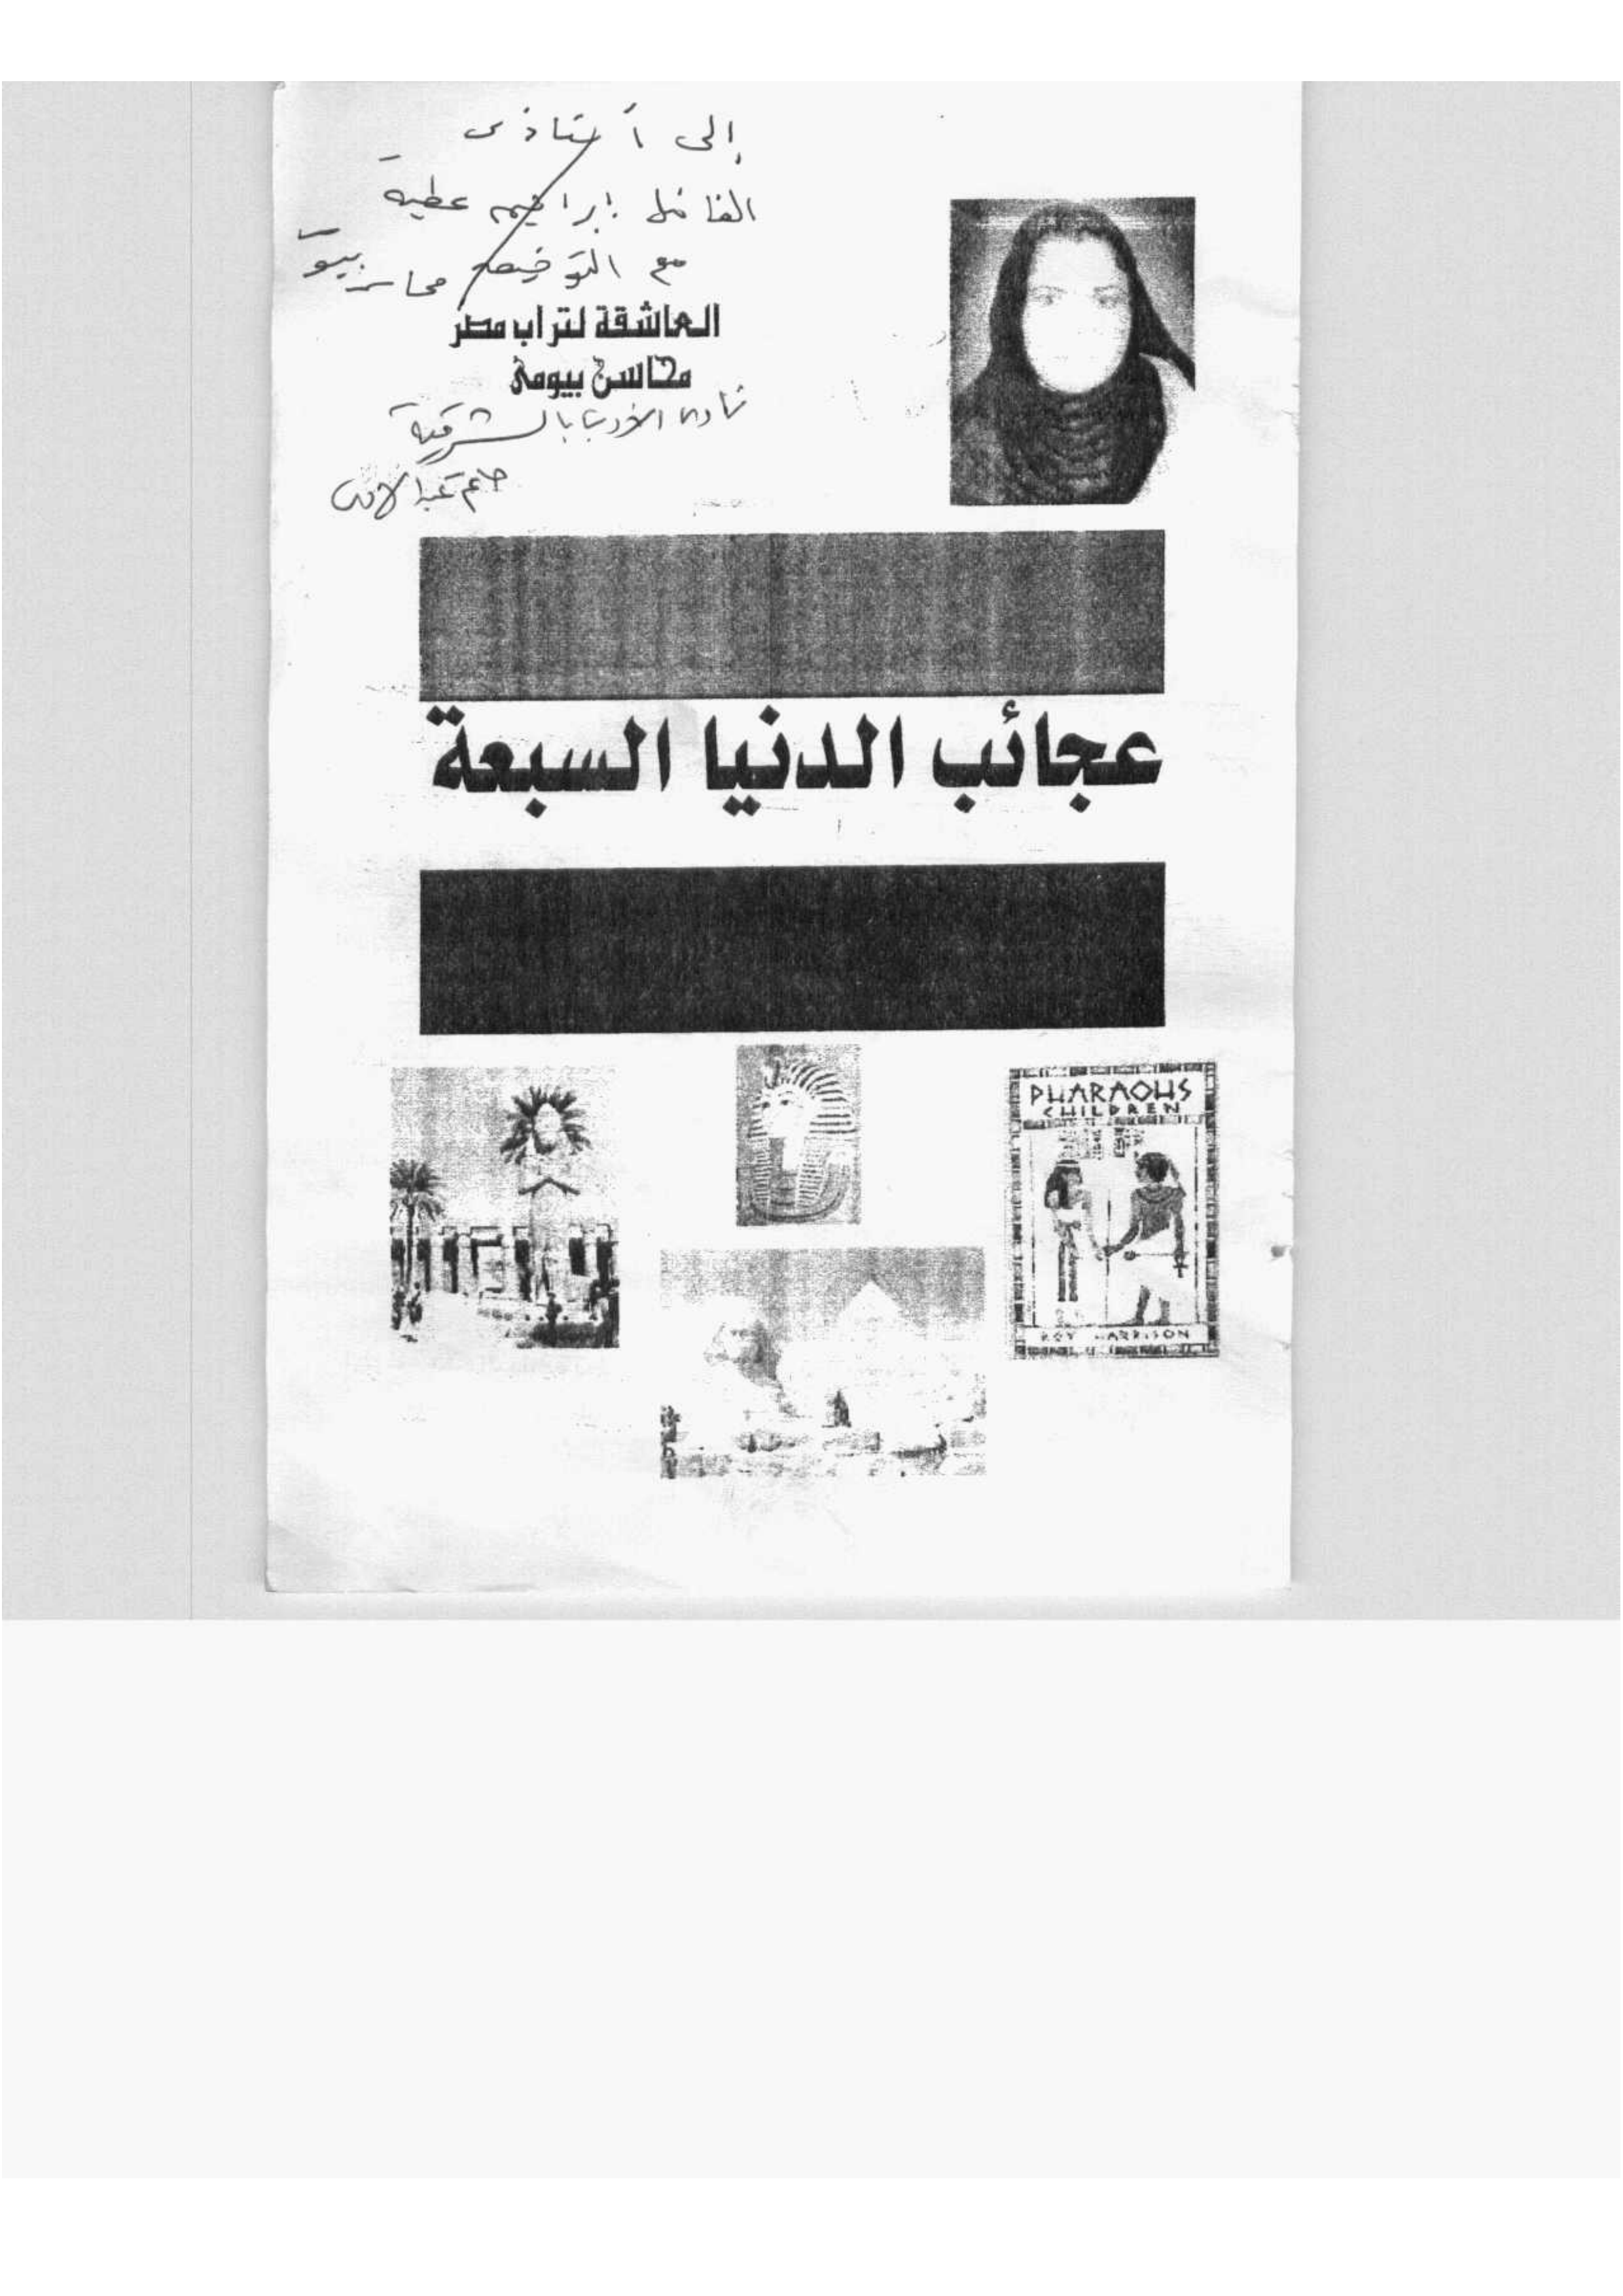 إلى أستاذى
الفاضل إبراهيم عطية
مع التوفيق محاسن بيومى
العاشقة لتراب مصر
محاسن بيومى
نادى الأدب بالشرقية
عبد
عجائب الدنيا السبعة
PHARAOHS
CHILDREN
ROY HARRISON